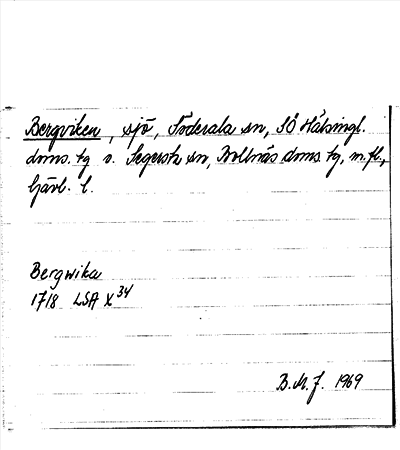 Bergviken, sjö, Söderala sn, SÖ Hälsingl.
doms. tg o. Segersta sn, Bollnäs doms tg, m.fl.,
Gävl. l.
Bergwika
1718 LSA X 34
B.M.J. 1969